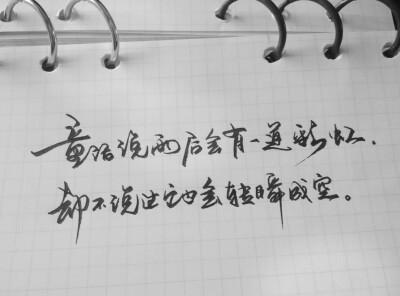 童话说雨后会有一道彩虹,
却不说过它也会转瞬成空。